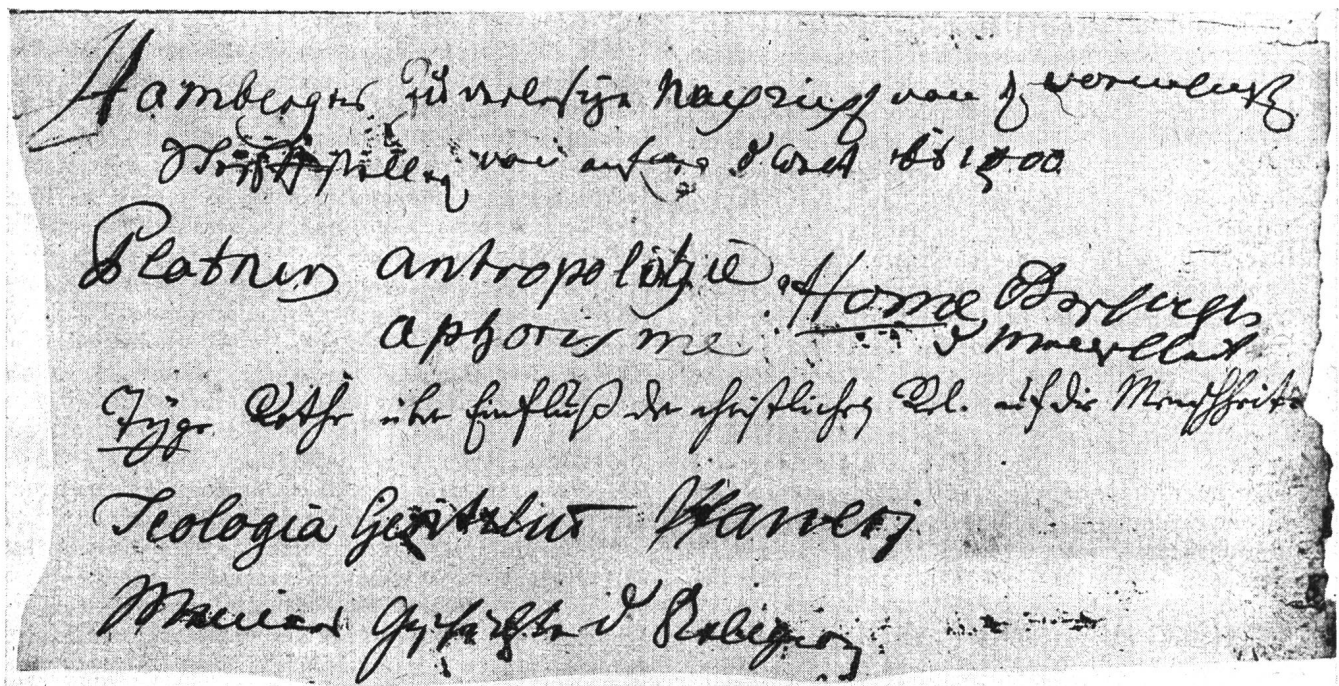 Hambergers Zuverlesige Nachricht von d vornehmst
Schriftsteller von anfang d welt bis 1500
Platners antropologie
aphorisme Home
d Menschheit
Tyge Rothe über Einfluß der christlichen Rel. auf die Menschheit
Teologia
Meiners Geschichte d Religion